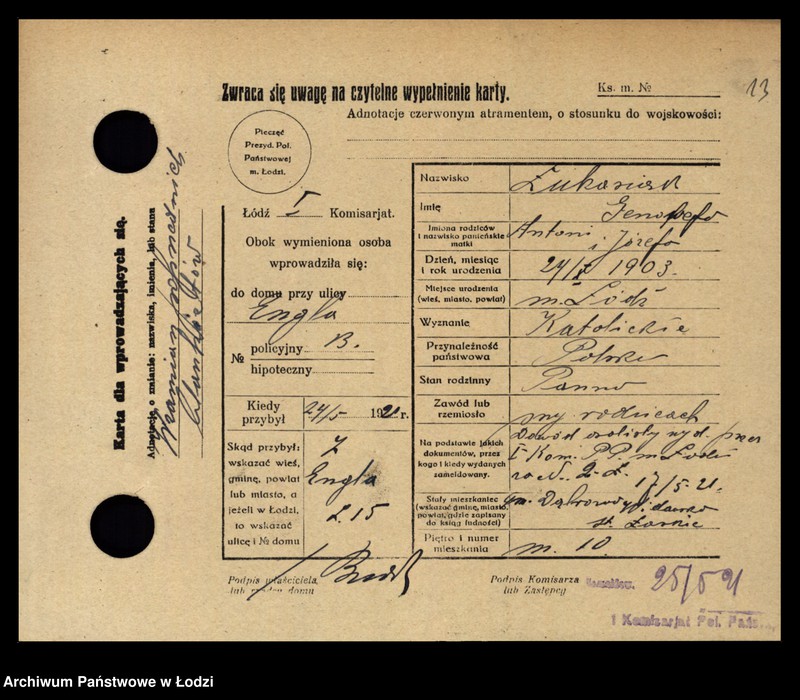 Zwraca się uwagę na czytelne wypełnienie karty.
Ks. m. №
13
Adnotacje czerwonym atramentem, o stosunku do wojskowości:
Pieczęć
Prezyd. Pol.
Państwowej
m. Łodzi.
Łódź I Komisarjat.
Obok wymieniona osoba
wprowadziła się:
do domu przy ulicy
Engla
№ policyjny B.
hipoteczny
Kiedy przybył 24/5 1921 r.
Skąd przybył:
wskazać wieś,
gminę, powiat
lub miasto, a
jeżeli w Łodzi,
to wskazać
ulicę i № domu
Z
Engla
L. 15
Podpis właściciela
lub rządcy domu
Nazwisko
Imię Genowefa
Imiona rodziców
i nazwisko panieńskie
matki
Antoni
i Józefa
Dzień, miesiąc
i rok urodzenia
1903.
Miejsce urodzenia
(wieś, miasto, powiat)
m. Łódź
Wyznanie Katolickie
Przynależność
państwowa
Polska
Stan rodzinny Panna
Zawód lub
rzemiosło
przy rodzicach
Na podstawie jakich
dokumentów, przez
kogo i kiedy wydanych
zameldowany.
Dowód osobisty wyd. przez
I Kom. P.P. m Łodzi
17/5-21.
Stały mieszkaniec
(wskazać gminę, miasto,
powiat, gdzie zapisany
do ksiąg ludności)
gm. Dąbrowa
Piętro i numer
mieszkania
m. 10
Podpis Komisarza
lub Zastępcy
25/5 21
1 Komisarjat Pol. Państw.
Karta dla wprowadzających się.
Adnotacje o zmianie: nazwiska, imienia, lub stana
Archiwum Państwowe w Łodzi